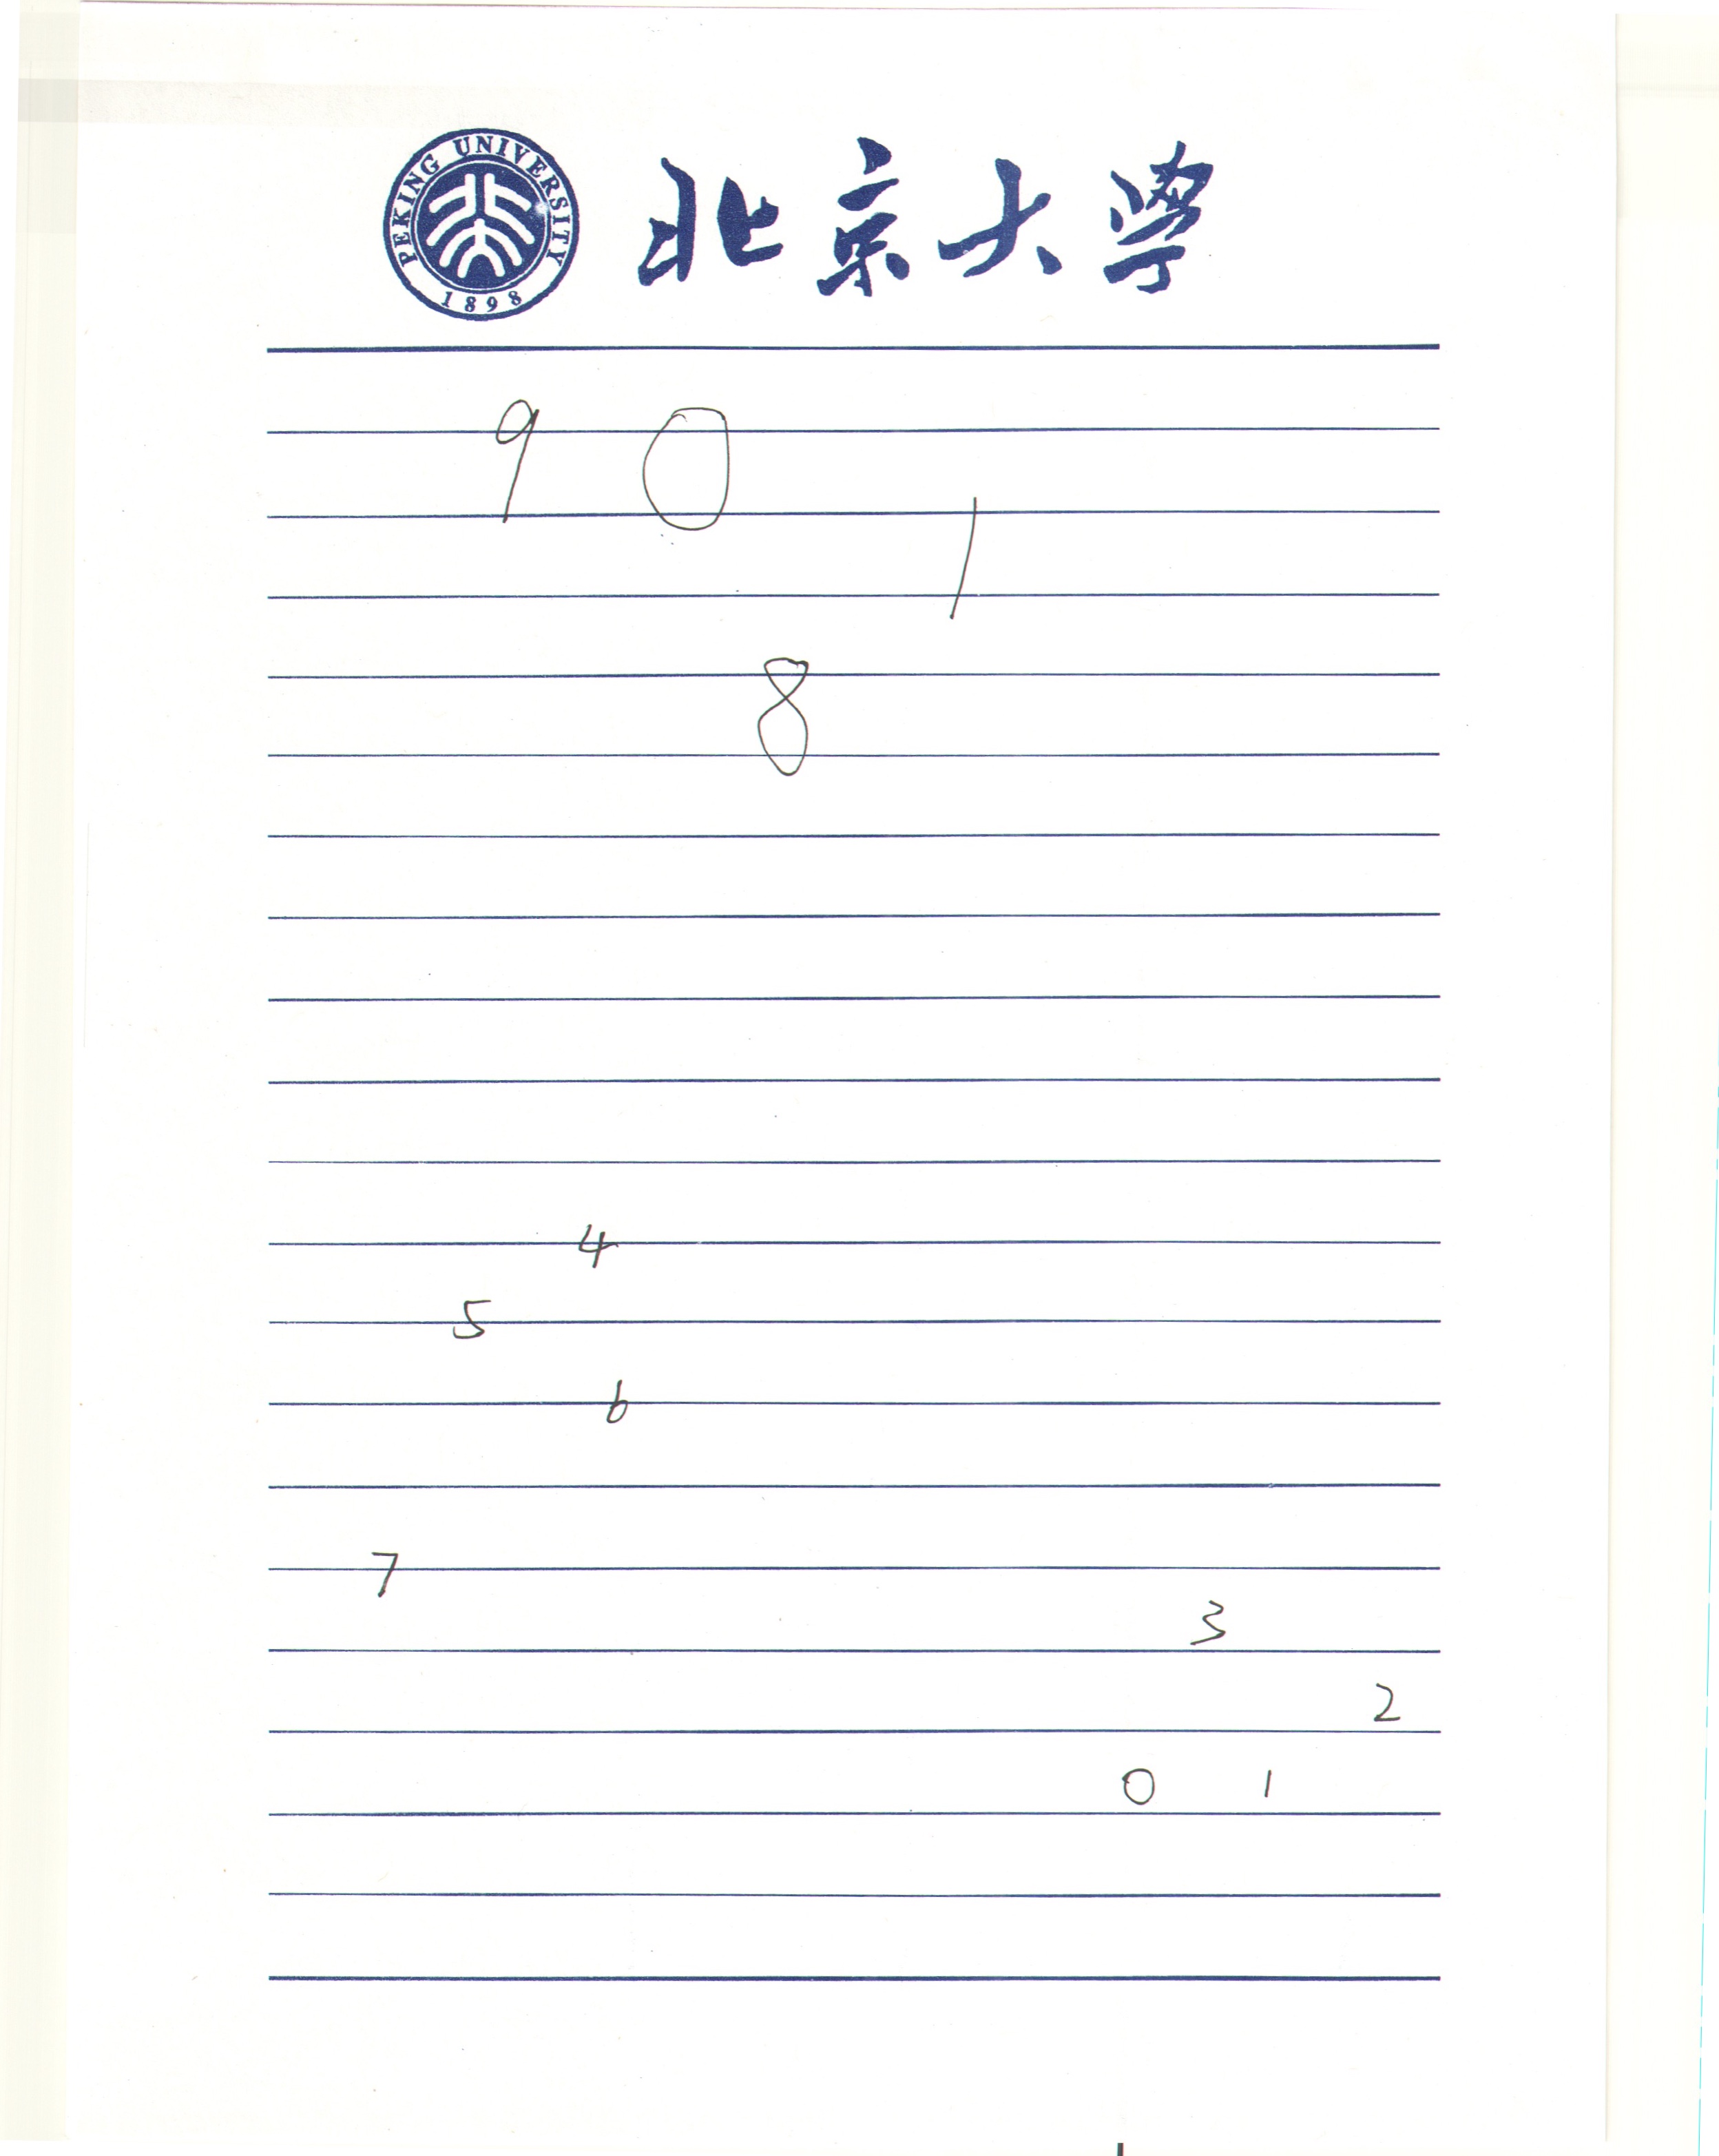 PEKING UNIVERSITY
1898
北京大學
9 0
1
8
4
5
6
7
3
2
0 1